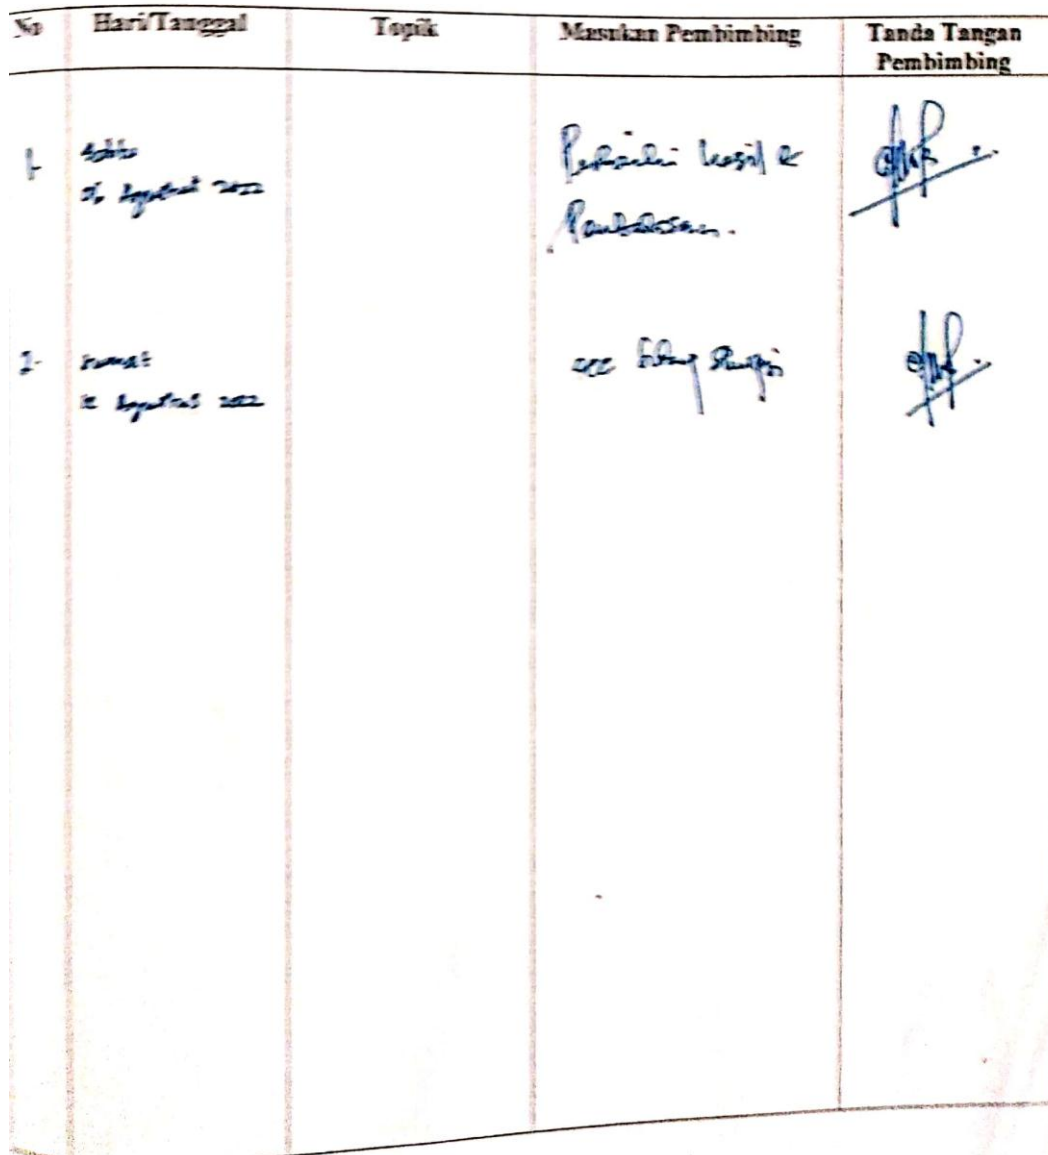 No Hari/Tanggal Topik Masukan Pembimbing Tanda Tangan Pembimbing
1. Sabtu
06 Agustus 2022
Perbaiki hasil &
Pembahasan.
2. Jumat
12 Agustus 2022
acc